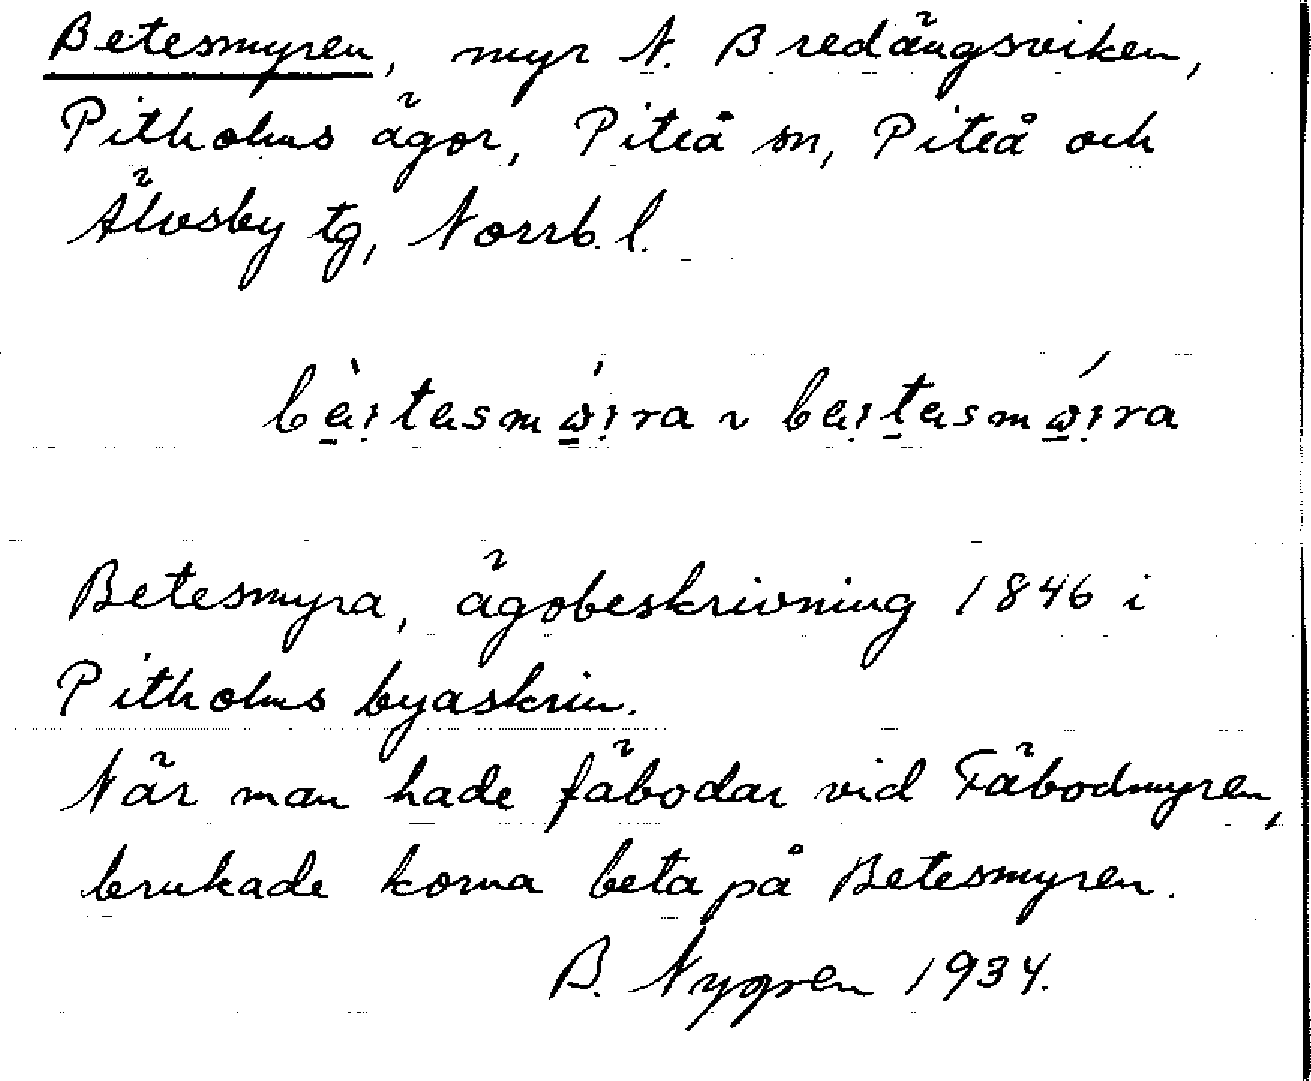 Betesmyren, myr N. Bredängsviken,
Pitholms ägor, Piteå sn, Piteå och
Älvsby tg, Norrb. l.
Betesmyra, ägobeskrivning 1846 i
Pitholms byaskrin.
När man hade fäbodar vid Fäbodmyren,
brukade korna beta på Betesmyren.
B. Nygren 1934.